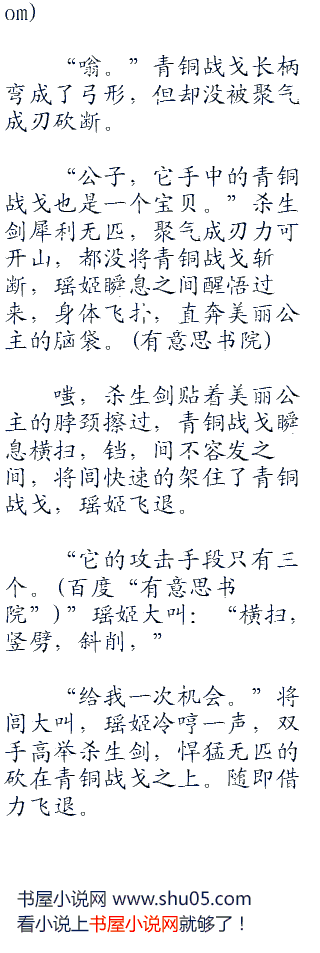 om)
“嗡。”青铜战戈长柄
弯成了弓形，但却没被聚气
成刃砍断。
“公子，它手中的青铜
战戈也是一个宝贝。”杀生
剑犀利无匹，聚气成刃力可
开山，都没将青铜战戈斩
断，瑶姬瞬息之间醒悟过
来，身体飞扑，直奔美丽公
主的脑袋。(有意思书院)
嗤，杀生剑贴着美丽公
主的脖颈擦过，青铜战戈瞬
息横扫，铛，间不容发之
间，将闾快速的架住了青铜
战戈，瑶姬飞退。
“它的攻击手段只有三
个。(百度“有意思书
院”)”瑶姬大叫：“横扫，
竖劈，斜削，”
“给我一次机会。”将
闾大叫，瑶姬冷哼一声，双
手高举杀生剑，悍猛无匹的
砍在青铜战戈之上。随即借
力飞退。
书屋小说网 www.shu05.com
看小说上书屋小说网就够了！